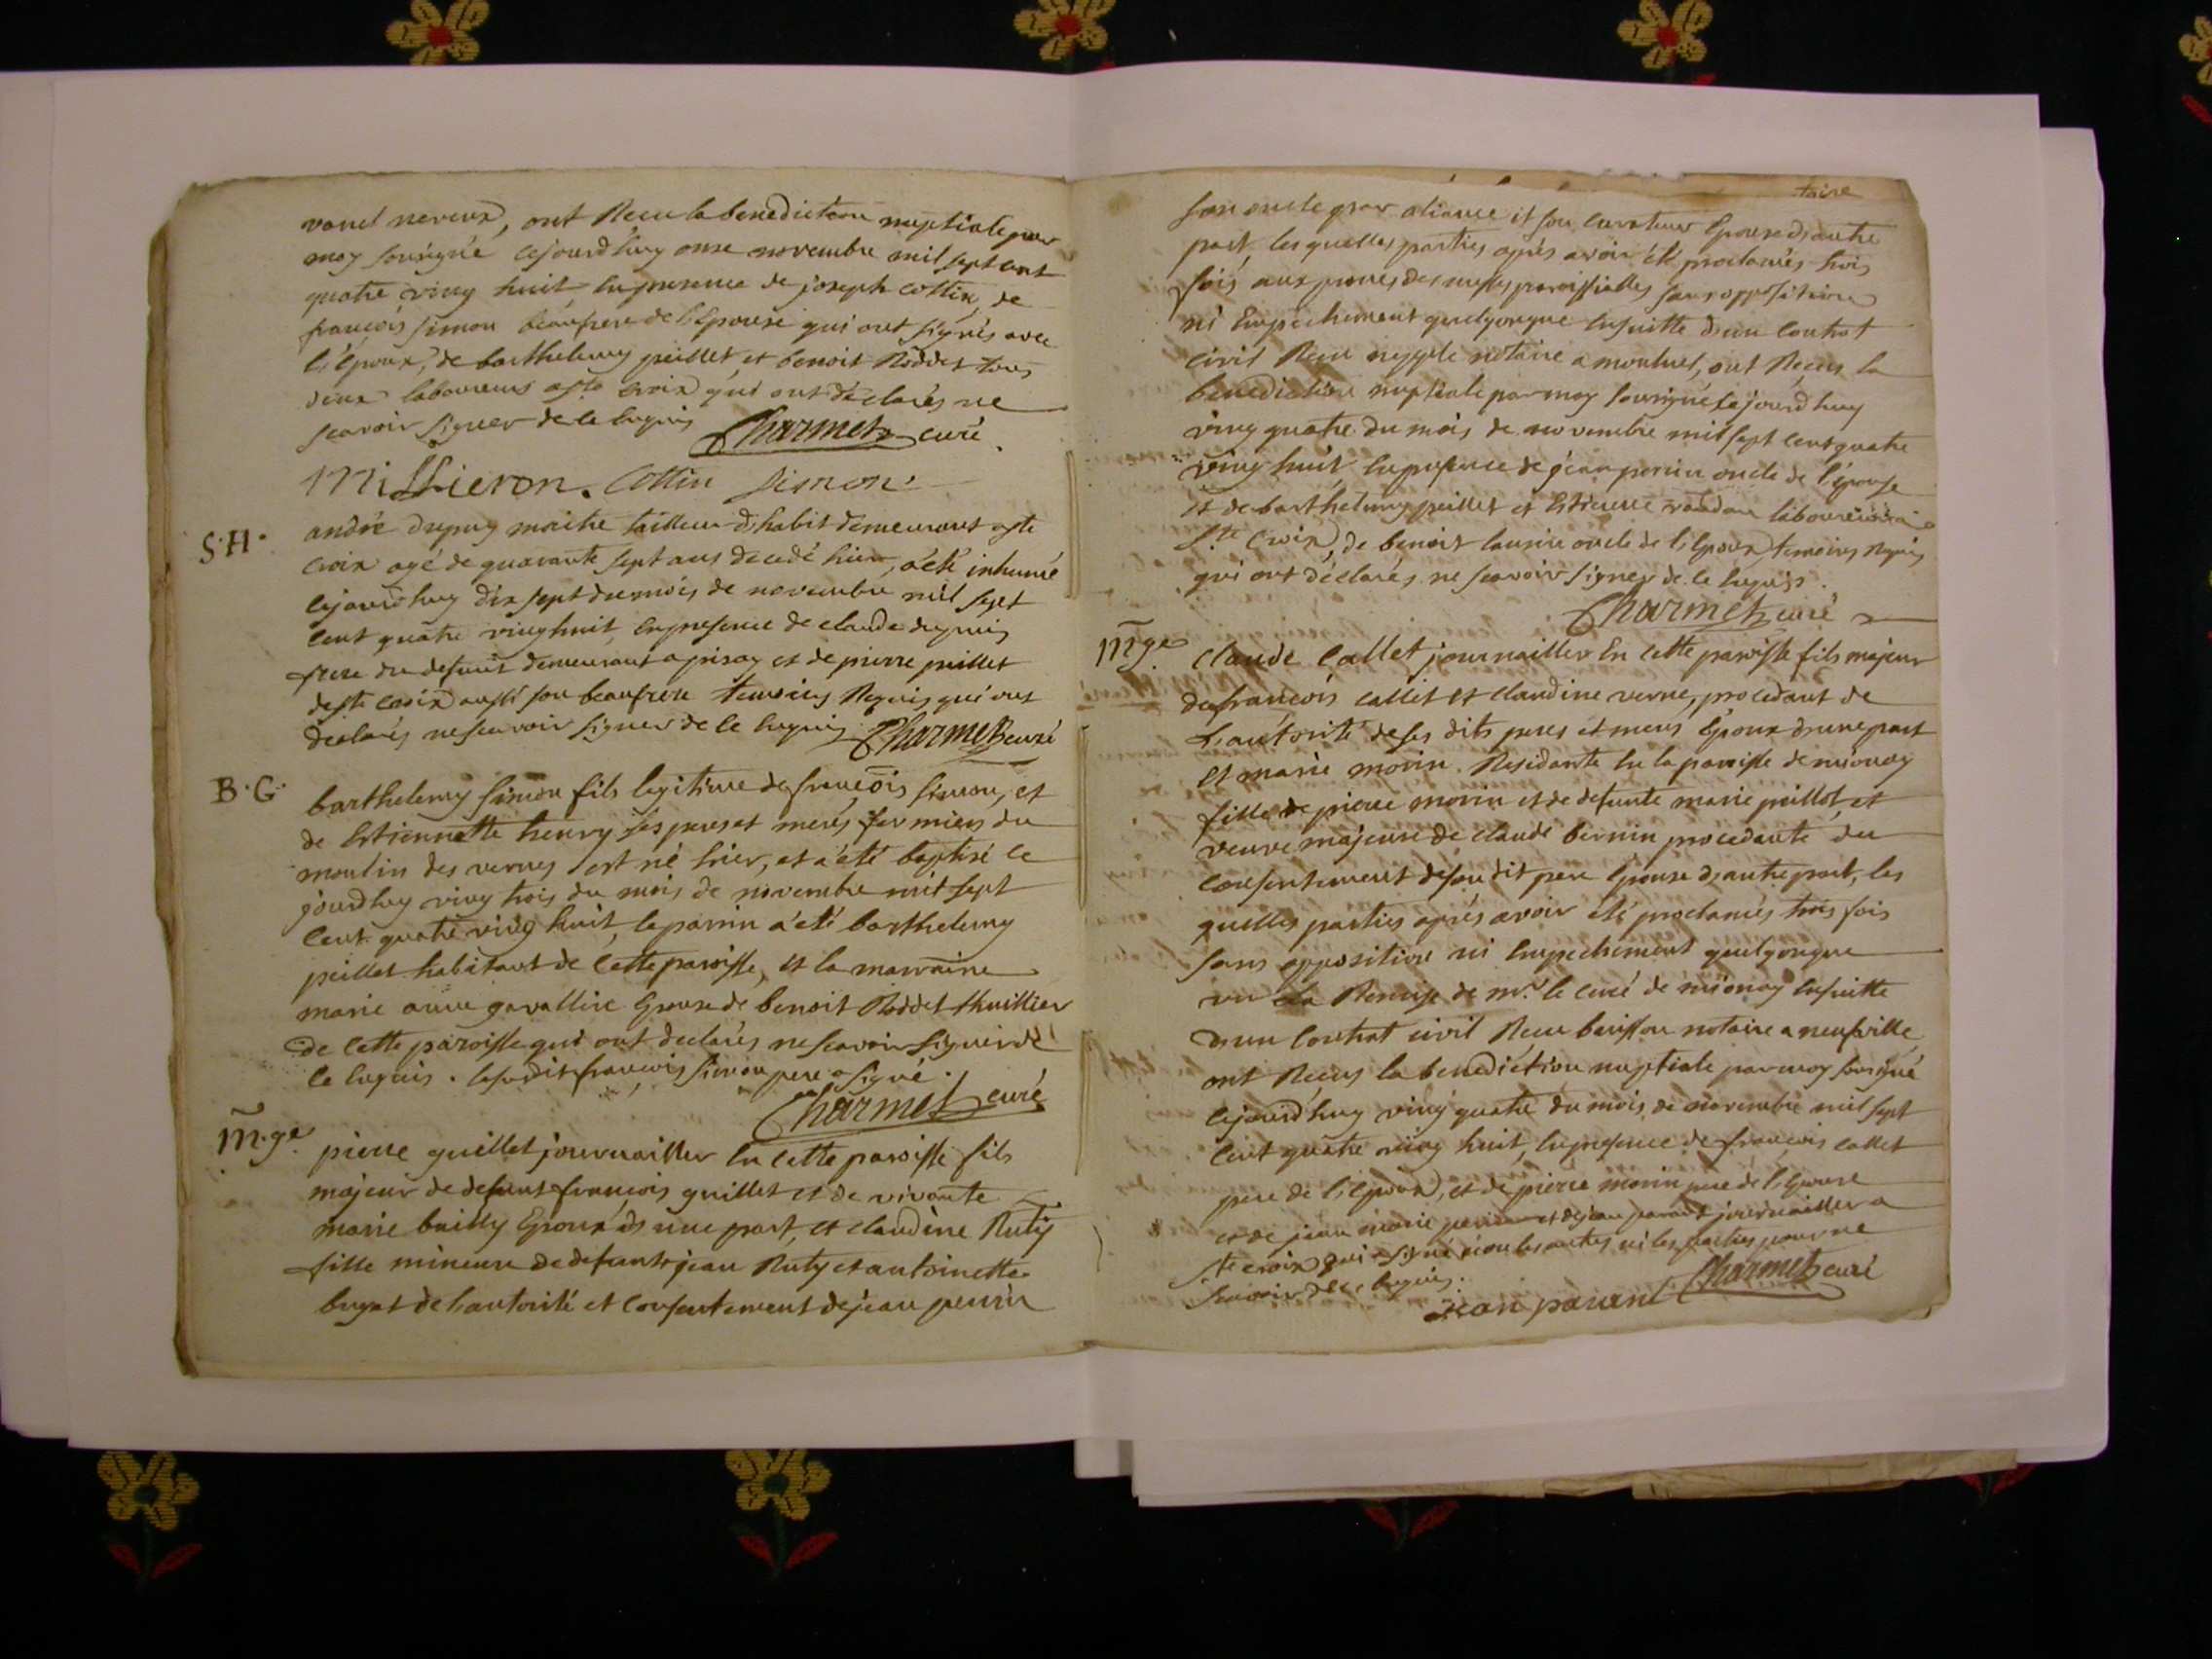 vanel neveux, ont Recu la benediction nuptiale par
moy sousigné cejourdhuy onse novembre mil sept cent
quatre ving huit, enpresence de joseph cottin, de
françois simon beaufrere de l'Epouse qui ont signés avec
l'époux, de barthelemy peillet et benoit Roddet tous
deux laboureurs a ste croix qui ont déclarés ne
scavoir signer de ce enquis Charmet curé
Millieron. Cottin Simon
S.H. andré dupuy maitre tailleur d'habit demeurant a ste
croix agé de quarante sept ans decedé hier, a été inhumé
cejourdhuy dix sept du mois de novembre mil sept
cent quatre ving huit, en presence de claude dupuis
frere du defunt demeurant a pisay et de pierre peillet
de ste croix aussi son beaufrere temoins Requis qui ont
declarés ne scavoir signer de ce enquis Charmet curé
B.G. barthelemy simon fils legitime de françois simon, et
de Estiennette henry ses peres et meres fermiers du
moulin des vernes est né hier, et a été baptisé ce
jourdhuy ving trois du mois de novembre mil sept
cent quatre ving huit, le parrin a été barthelemy
peillet habitant de cette paroisse, et la marraine
marie anne gavalline Epouse de benoit Roddet thuillier
de cette paroisse qui ont declarés ne scavoir signer de
ce enquis. le susdit françois simon pere a signé.
Charmet curé
M.ge pierre guillet journaillier En cette paroisse fils
majeur de defunt françois guillet et de vivante
marie bailly Epoux d'une part, et claudine Ruty
fille mineure de defunt jean Ruty et antoinette
bugat de l'autorité et consentement de jean perrin
taire
son oncle par aliance et son curateur Epouse d'autre
part, les quelles parties après avoir été proclamés trois
fois aux prones des messes paroissialles sans opposition
ni Empechement quelqonque Ensuitte d'un contrat
civil Recu notaire a montluel, ont Recus la
benediction nuptiale par moy sousigné cejourdhuy
ving quatre du mois de novembre mil sept cent quatre
ving huit, En presence de jean perrin oncle de l'épouse
et de barthelemy peillet et Estienne laboureurs a
ste Croix, de benoit oncle de l'Epoux temoins Requis
qui ont déclarés ne scavoir signer de ce Enquis.
Charmet curé
M.ge claude Callet journaillier En cette paroisse fils majeur
de françois callet et claudine verne, procedant de
l'autorité de ses dits peres et meres Epoux d'une part
et marie morin Residante En la paroisse de mionay
fille de pierre morin et de defunte marie peillot, et
veuve majeure de claude bernin procedante du
consentement de son dit pere Epouse d'autre part, les
quelles parties après avoir été proclamés trois fois
sans opposition ni Empechement quelqonque
vu la Remise de mr. le curé de mionay Ensuitte
d'un contrat civil Recu notaire a neufville
ont Recus la benediction nuptiale par moy sousigné
cejourdhuy ving quatre du mois de novembre mil sept
cent quatre ving huit, En presence de françois callet
pere de l'Epoux, et de pierre morin pere de l'Epouse
et de jean marie perrin et de jean parant journaillier a
ste croix qui a signé non les autres ni les parties pour ne
scavoir de ce enquis.
jean parent Charmet curé